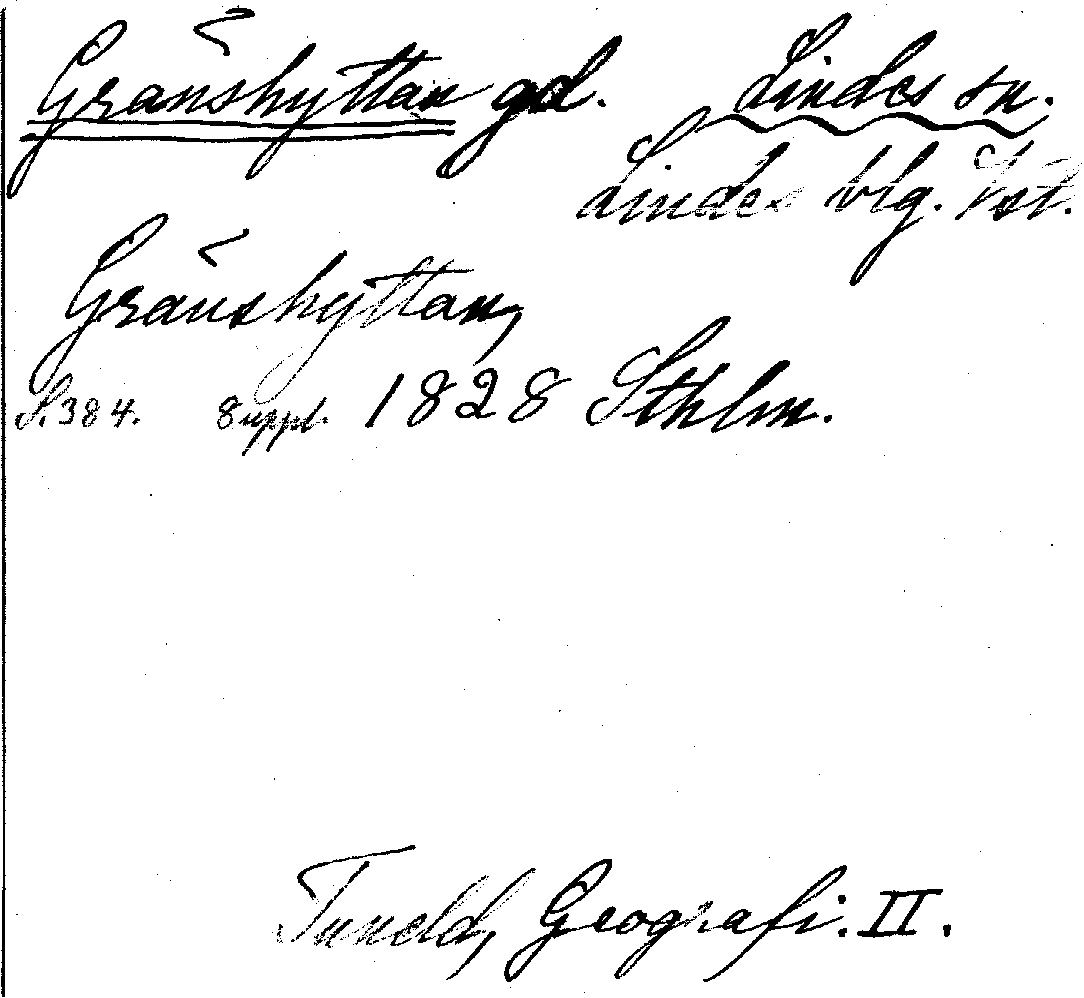 Gränshyttan gd. Lindes sn.
Lindes blg.
Gränshyttan,
S. 384. Suppl. 1828 Sthlm.
Tuneld, Geografi. II.